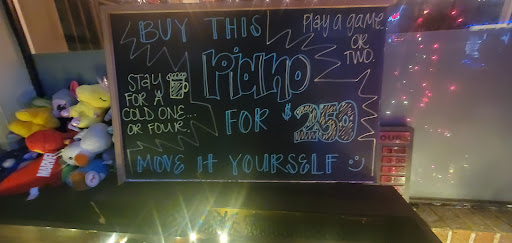 BUY THIS
Piano
FOR $250
MOVE IT YOURSELF :)
STAY
FOR A
COLD ONE...
OR FOUR.
Play a game.
OR
TWO.